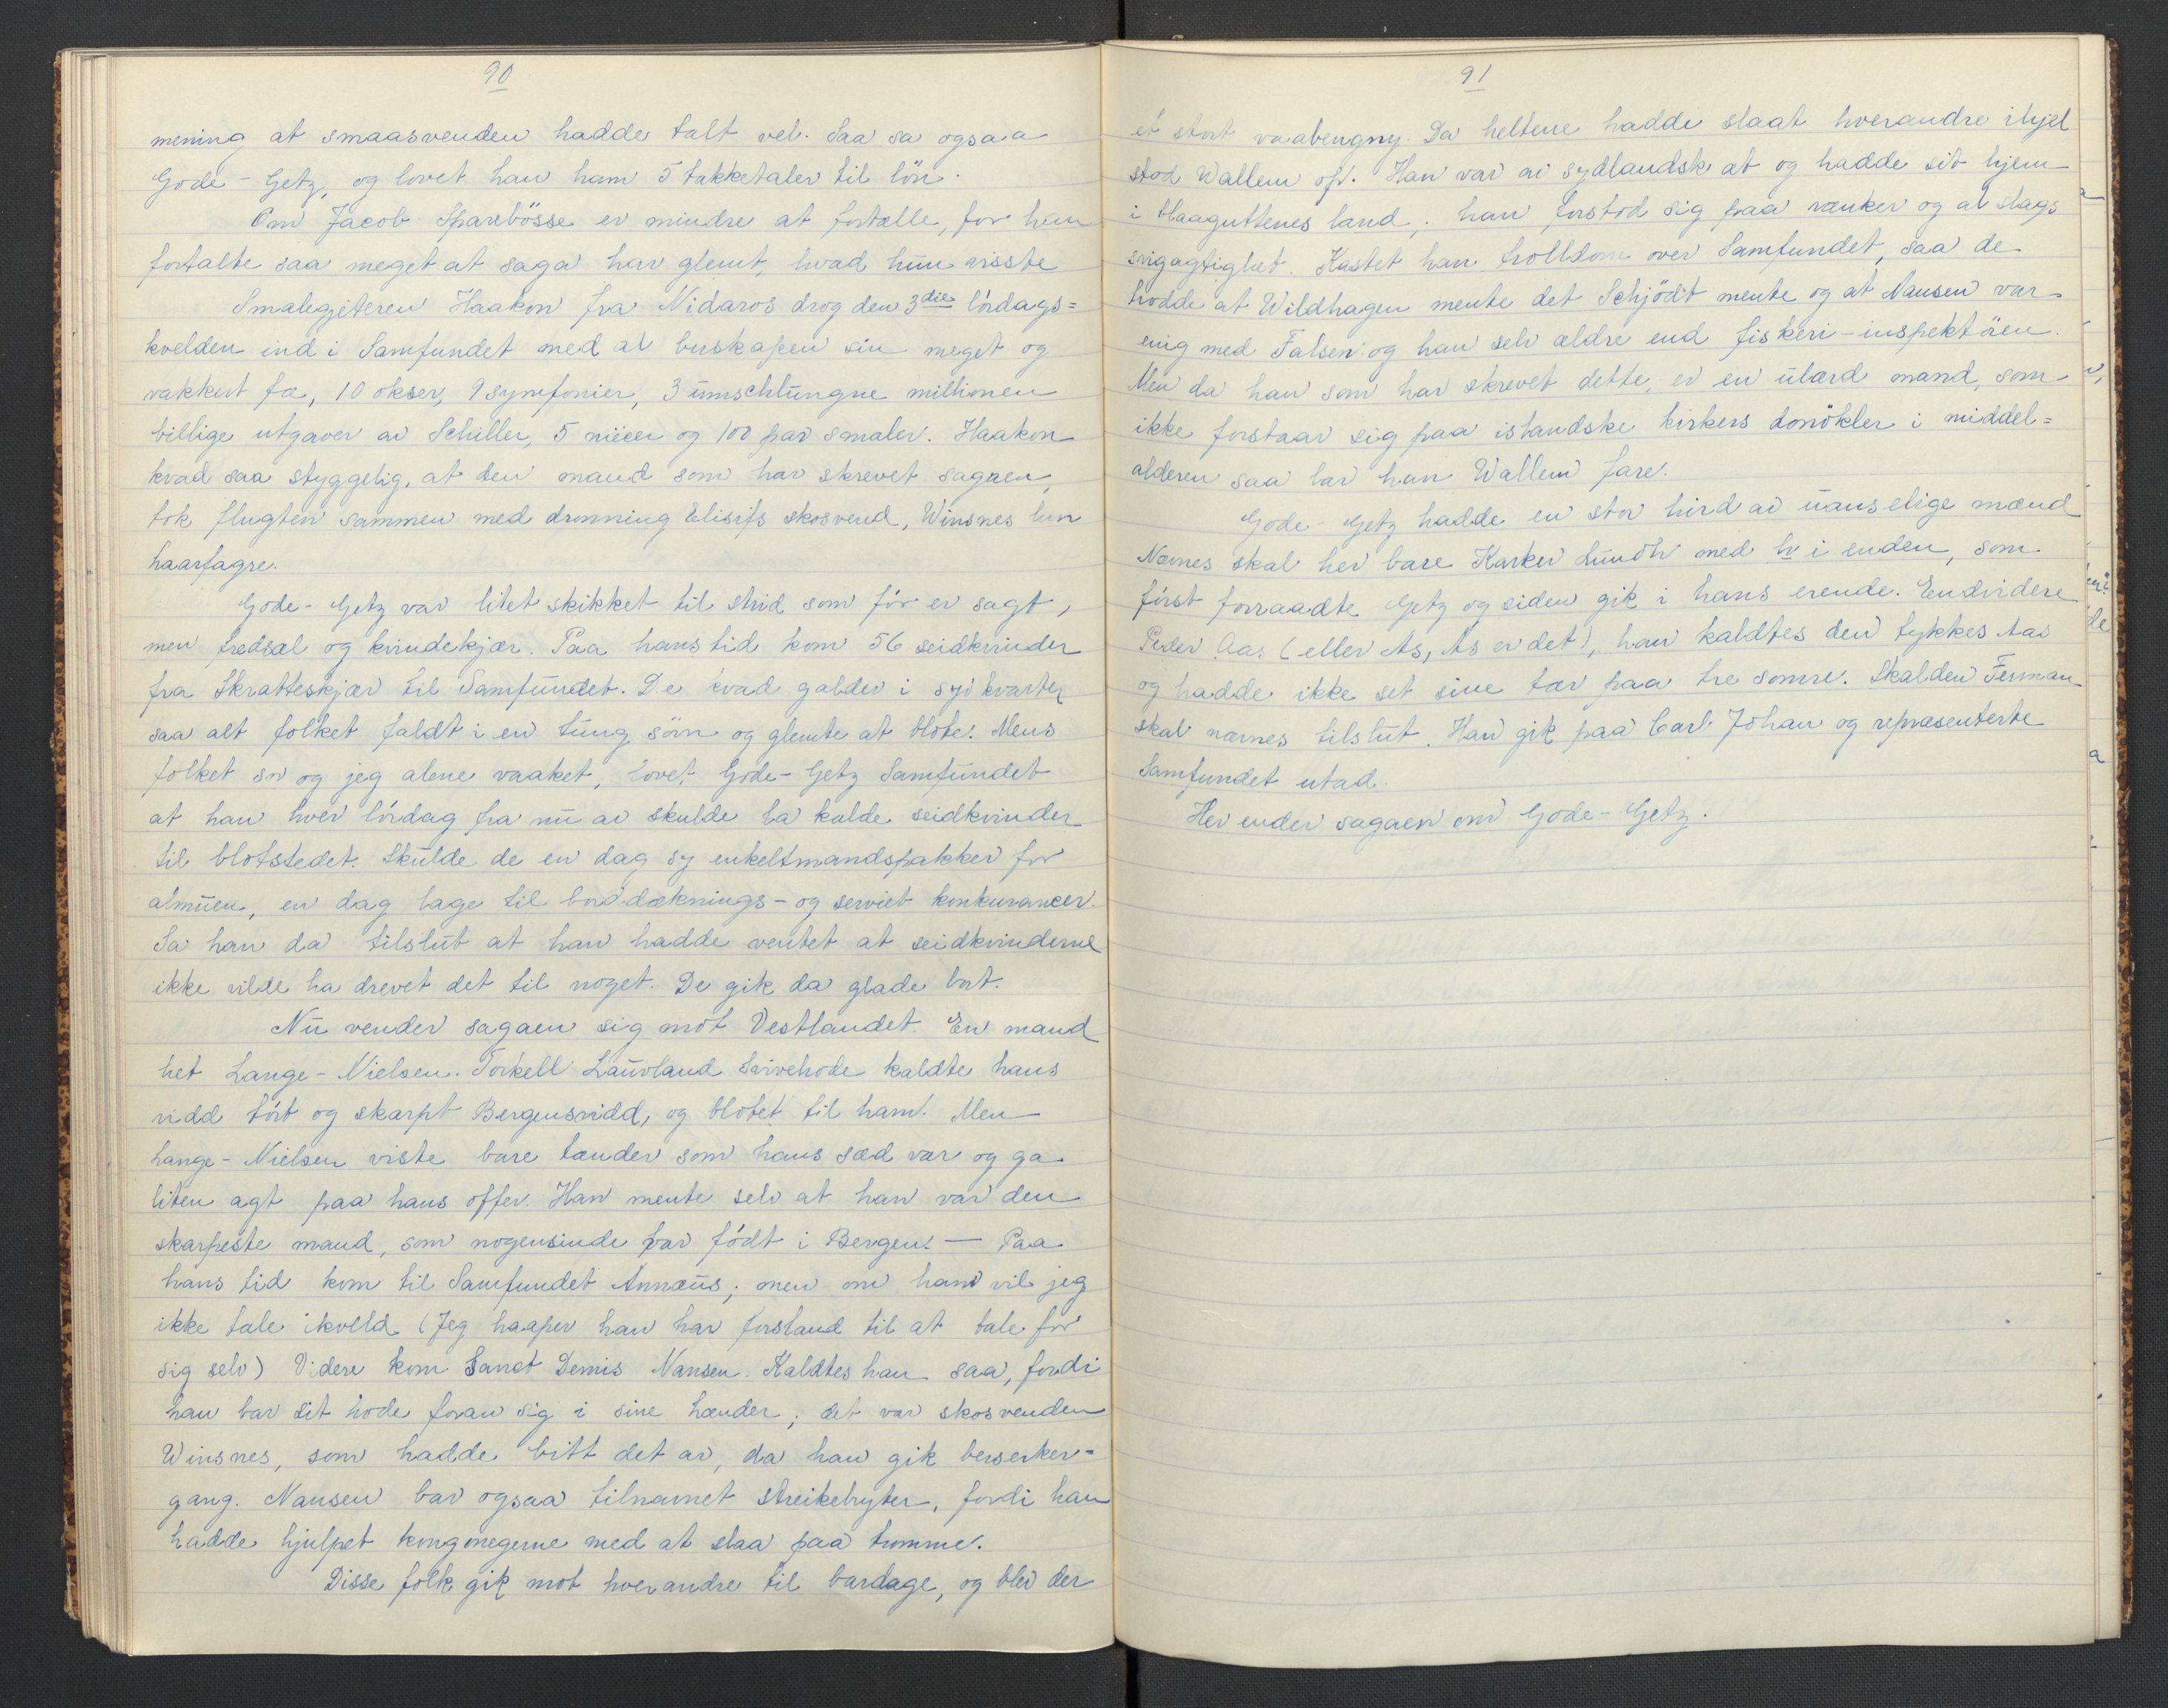 90
mening at smaasvenden hadde talt vel. Saa sa ogsaa
Gode-Getz, og lovet han ham 5 takketaler til lön.
Om Jacob Sparebösse er mindre at fortælle, for han
fortalte saa meget at saga har glemt, hvad hun visste
Smalegjeteren Haakon fra Nidaros drog den 3die lördags=
kvelden ind i Samfundet med al buskapen sin meget og
vakkert fæ, 10 okser, 9 symfonier, 3 umschlungne millionen
billige utgaver av Schiller, 5 niecer og 100 par smaler. Haakon
kvad saa styggelig, at den mand som har skrevet sagaen,
tok flugten sammen med dronning Elisifs skosvend, Winsnes lun
haarfagre.
Gode-Getz var litet skikket til strid som för er sagt,
men fredsæl og kvindekjær. Paa hans tid kom 56 seidkvinder
fra Skratteskjær til Samfundet. De kvad galder i syv kvarter
saa alt folket faldt i en tung sövn og glemte at blote. Mens
folket sov og jeg alene vaaket, lovet Gode-Getz Samfundet
at han hver lördag fra nu av skulde la kalde seidkvinder
til blotstedet. Skulde de en dag sy enkeltmandspakker for
almuen, en dag lage til borddæknings- og serviet konkurancer.
Sa han da tilslut at han hadde ventet at seidkvinderne
ikke vilde ha drevet det til noget. De gik da glade bort.
Nu vender sagaen sig mot Vestlandet. En mand
het Lange-Nielsen. Torkell Lauvland Sirvehode kaldte hans
vidd tört og skarpt Bergensvidd, og blotet til ham. Men
Lange-Nielsen viste bare tænder som hans sæd var og ga
liten agt paa hans offer. Han mente selv at han var den
skarpeste mand, som nogensinde var födt i Bergen. — Paa
hans tid kom til Samfundet Annæus; men om ham vil jeg
ikke tale ikveld (Jeg haaper han har forstand til at tale for
sig selv) Videre kom Sanct Denis Nansen. Kaldtes han saa, fordi
han bar sit hode foran sig i sine hænder; det var skosvenden
Winsnes, som hadde bitt det av, da han gik berserker=
gang. Nansen bar ogsaa tilnavnet streikebryter, fordi han
hadde hjulpet kongonegerne med at slaa paa tromme.
Disse folk gik mot hverandre til bardage, og blev der
91
et stort vaabengny. Da heltene hadde slaat hverandre ihjel
stod Wallem op. Han var av sydlandsk æt og hadde sit hjem
i blaaguttenes land; han forstod sig paa rænker og al slags
svigagtighet. Kastet han trolldom over Samfundet, saa de
trodde at Wildhagen mente det Schjödt mente og at Nansen var
enig med Falsen og han selv ældre end fiskeri-inspektören.
Men da han som har skrevet dette, er en ulærd mand, som
ikke forstaar sig paa islandske kirkers dornökler i middel=
alderen saa lar han Wallem fare.
Gode-Getz hadde en stor hird av uanselige mænd
Nævnes skal her bare Karker Lundh med h i enden, som
först forraadte Getz og siden gik i hans erende. Endvidere
Peder Aas (eller As, As er det), han kaldtes den tykkes Aas
og hadde ikke set sine tær paa tre somre. Skalden Ferman
skal nævnes tilslut. Han gik paa Carl Johan og repræsenterte
Samfundet utad.
Her ender sagaen om Gode-Getz.